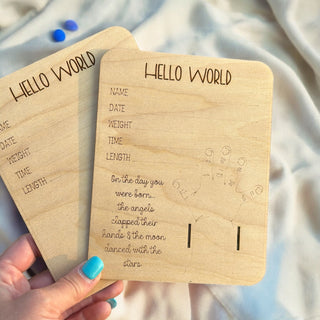 HELLO WORLD
NAME
DATE
WEIGHT
TIME
LENGTH
On the day you
were born...
the angels
clapped their
hands & the moon
danced with the
stars
HELLO WORLD
NAME
DATE
WEIGHT
TIME
LENGTH